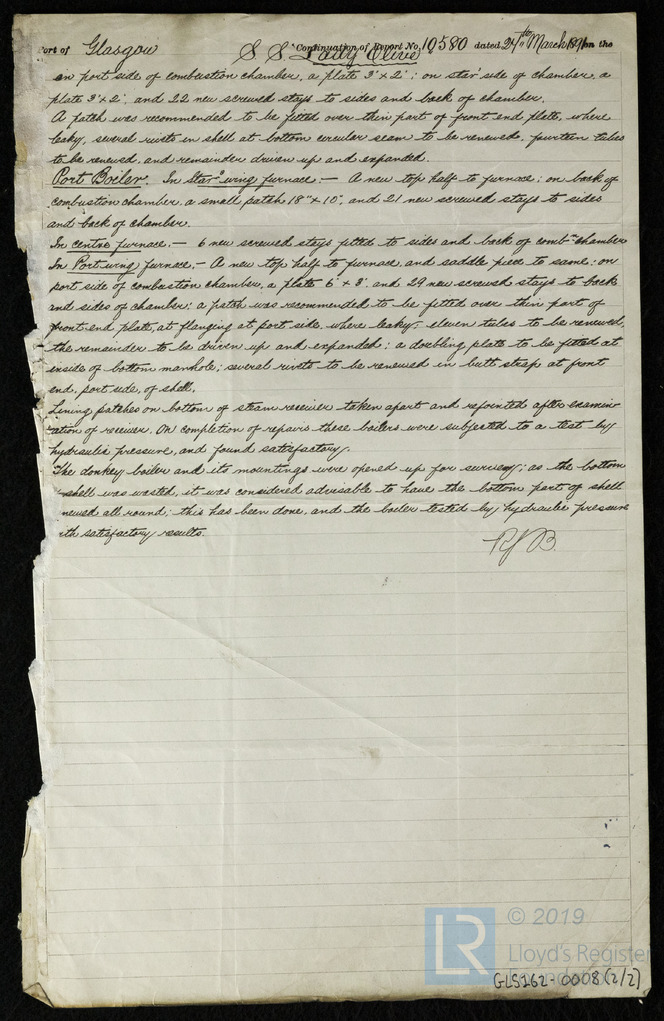 Port of Glasgow Continuation of Report No. 10580 dated 24th March 1891 on the
S S "Lady Olive"
on port side of combustion chamber, a plate 3' x 2'; on star' side of chamber, a
plate 3' x 2', and 22 new screwed stays to sides and back of chamber.
A patch was recommended to be fitted over thin part of front end plate, where
leaky, several rivets in shell at bottom circular seam to be renewed, fourteen tubes
to be renewed, and remainder driven up and expanded.
Port Boiler. In Star'd wing furnace. — A new top half to furnace; on back of
combustion chamber, a small patch 18" x 10", and 21 new screwed stays to sides
and back of chamber.
In centre furnace. — 6 new screwed stays fitted to sides and back of comb'n chamber
In Port wing furnace. — A new top half to furnace, and saddle piece to same; on
port side of combustion chamber, a plate 6' x 3', and 29 new screwed stays to back
and sides of chamber; a patch was recommended to be fitted over thin part of
front end plate, at flanging at port side, where leaky; eleven tubes to be renewed,
the remainder to be driven up and expanded; a doubling plate to be fitted at
inside of bottom manhole; several rivets to be renewed in butt strap at front
end, port side, of shell.
Lining patches on bottom of steam receiver taken apart and rejointed after examin-
ation of receiver. On completion of repairs these boilers were subjected to a test by
hydraulic pressure, and found satisfactory.
The donkey boiler and its mountings were opened up for survey; as the bottom
shell was wasted, it was considered advisable to have the bottom part of shell
newed all round; this has been done, and the boiler tested by hydraulic pressure
ith satisfactory results.
LR © 2019
Lloyd's Register
Foundation
GLS162-0008 (2/2)